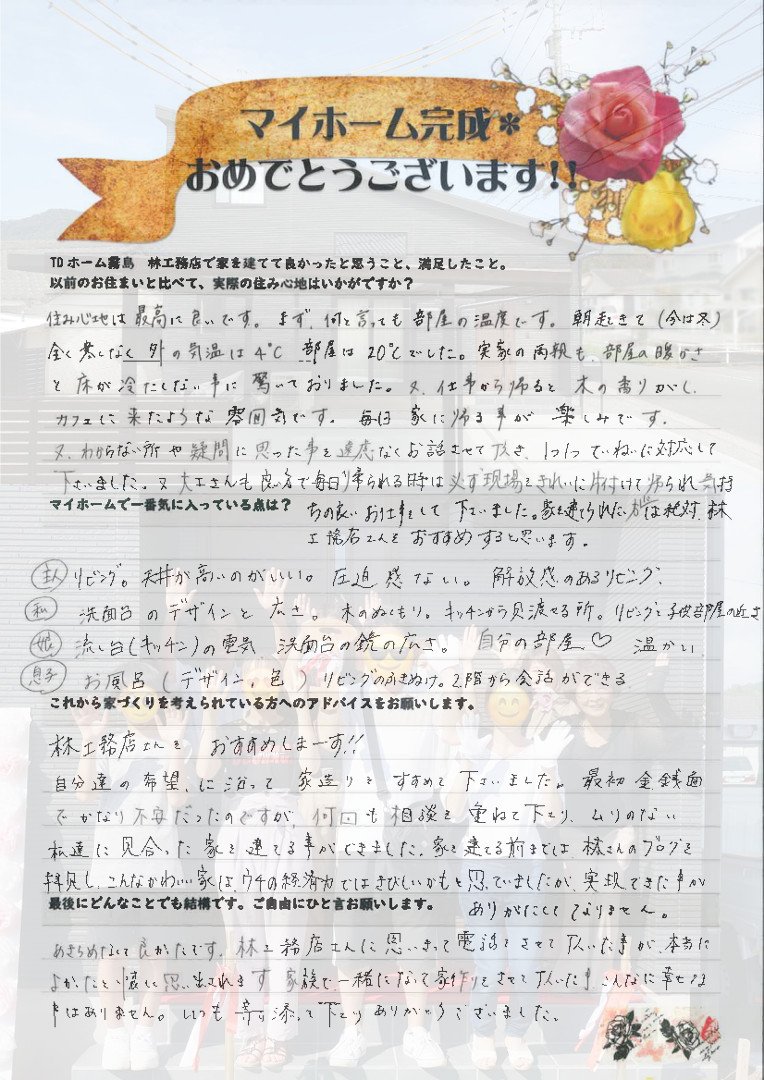 マイホーム完成*
おめでとうございます!!
TDホーム霧島　林工務店で家を建てて良かったと思うこと、満足したこと。
以前のお住まいと比べて、実際の住み心地はいかがですか？
住み心地は最高に良いです。まず、何と言っても部屋の温度です。朝起きて(今は冬)
全く寒しなく外の気温は4℃ 部屋は20℃でした。実家の両親も、部屋の暖かさ
と床が冷たしない事に驚いておりました。又、仕事から帰ると木の香りがし、
カフェに来たような雰囲気です。毎日家に帰る事が楽しみです。
又、わからない所や疑問に思った事を遠慮なくお話させて頂き、1つ1つていねいに対応して
下さいました。又大工さんも良い方で毎日帰られる時は必ず現場をきれいに片付けて帰られ気持
マイホームで一番気に入っている点は？
ちの良いお仕事をして下さいました。家を建てられたい方には絶対、林
工務店さんをおすすめすると思います。
主人 リビング。天井が高いのがいい。圧迫感ない。解放感のあるリビング、
私 洗面台のデザインと広さ。木のぬくもり。キッチンから見渡せる所。リビングと子供部屋の近さ
娘 流し台(キッチン)の電気 洗面台の鏡の広さ。自分の部屋♡ 温かい
息子 お風呂(デザイン、色) リビングのふきぬけ。2階から会話ができる
これから家づくりを考えられている方へのアドバイスをお願いします。
林工務店さんをおすすめしまーす!!
自分達の希望に沿って家造りをすすめて下さいました。最初金銭面
でかなり不安だったのですが、何回も相談を重ねて下さり、ムリのない
私達に見合った家を建てる事ができました。家を建てる前までは林さんのブログを
拝見し、こんなかわいい家は、ウチの経済力ではきびしいかもと思っていましたが、実現できた事が
最後にどんなことでも結構です。ご自由にひと言お願いします。
ありがたくてなりません。
あきらめなくて良かったです。林工務店さんに思いきって電話をさせて頂いた事が、本当に
よかったと 思い出されます 家族で一緒になって家作りをさせて頂いた事、こんなに幸せな
事はありません。いつも寄り添って下さりありがとうございました。